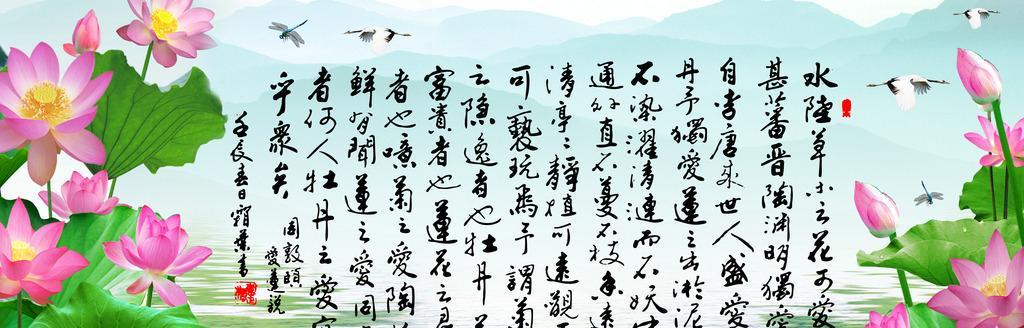 水陸草木之花可愛
甚蕃晋陶渊明獨愛
自李唐來世人盛愛
丹予獨愛蓮之出淤泥
不染濯清漣而不妖
通外直不蔓不枝香遠
清亭々靜植可遠觀
可褻玩焉予謂菊
之隐逸者也牡丹花
富貴者也蓮花之君
者也噫菊之愛陶
鮮有聞蓮之愛同
者何人牡丹之愛宜
乎衆矣
周敦頤
愛蓮説